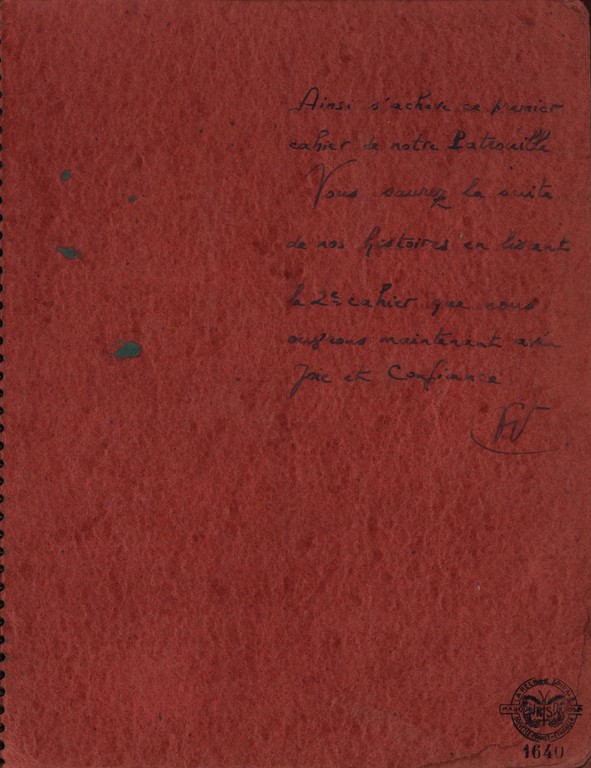 Ainsi s'achève ce premier
cahier de notre Patrouille
Vous saurez la suite
de nos histoires en lisant
le 2e cahier que nous
ouvrons maintenant avec
Joie et Confiance
FV
LA RELIURE
1640